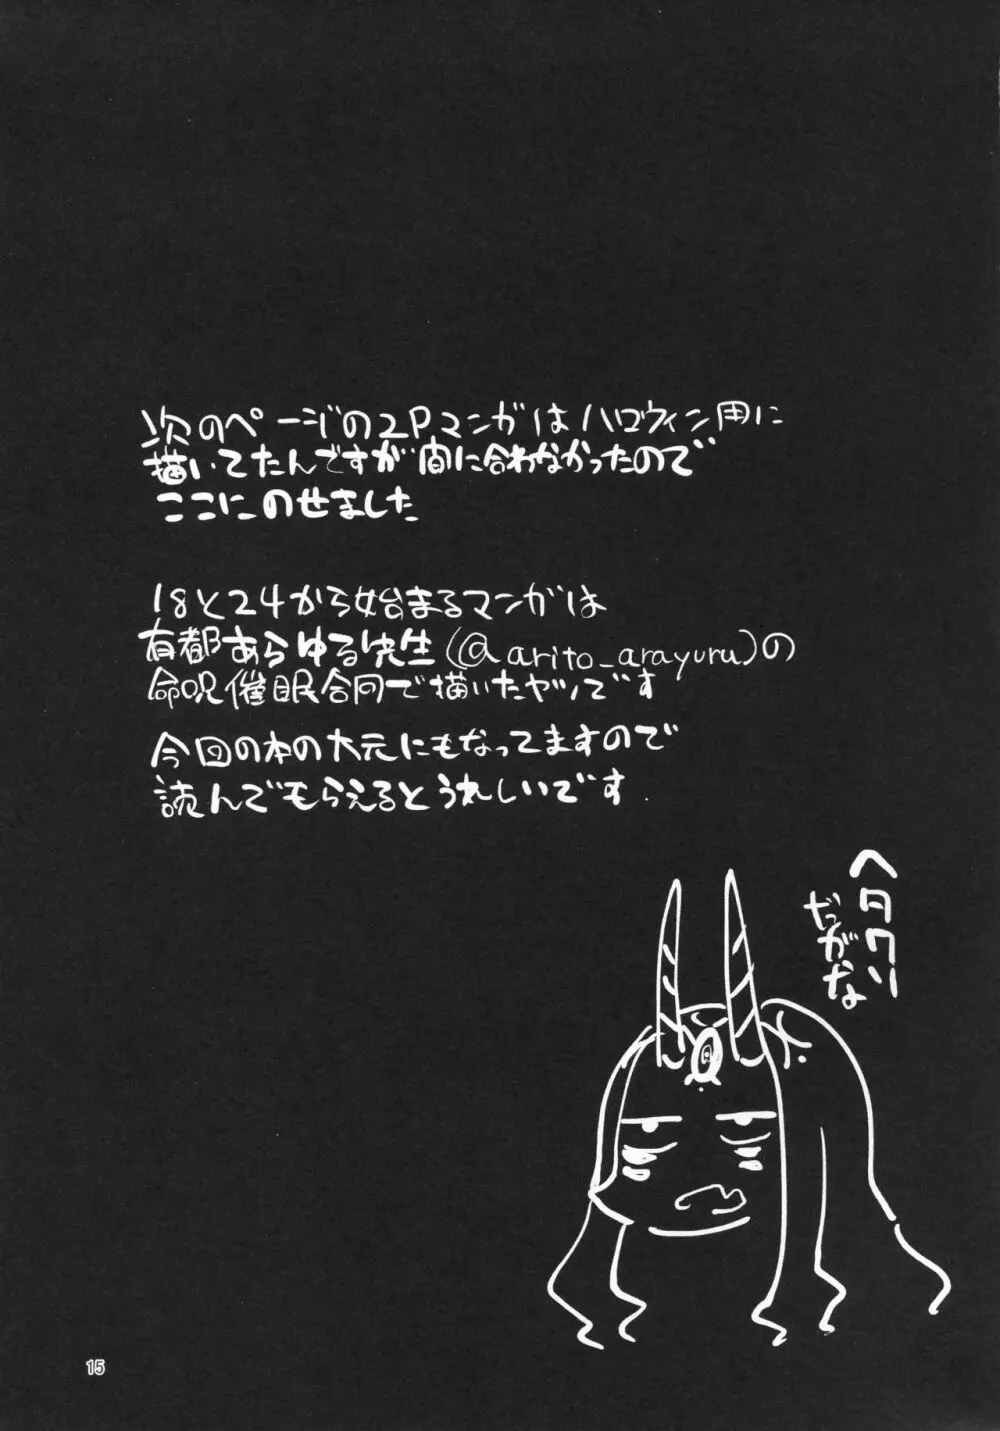 次のページの2Pマンガはハロウィン用に
描いてたんですが間に合わなかったので
ここにのせました
18と24から始まるマンガは
有都あらゆる先生(@arito_arayuru)の
命呪催眠合同で描いたヤツです
今回の本の大元にもなってますので
読んでもらえるとうれしいです.
ヘタクソ
だっがな
15